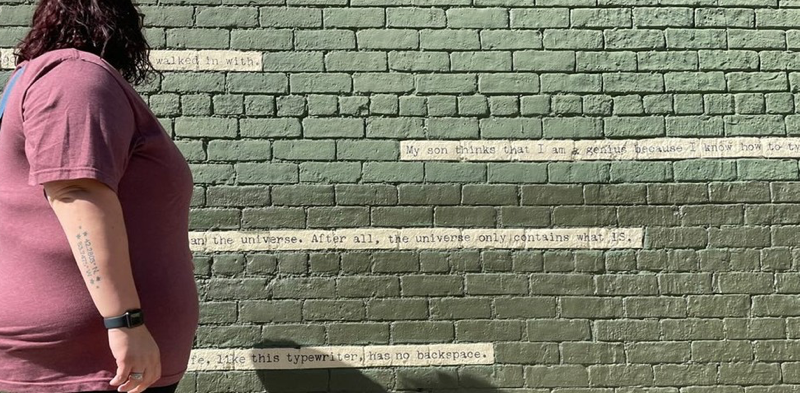 walked in with.
My son thinks that I am a genius because I know how to ty
an the universe. After all, the universe only contains what IS.
fe, like this typewriter, has no backspace.